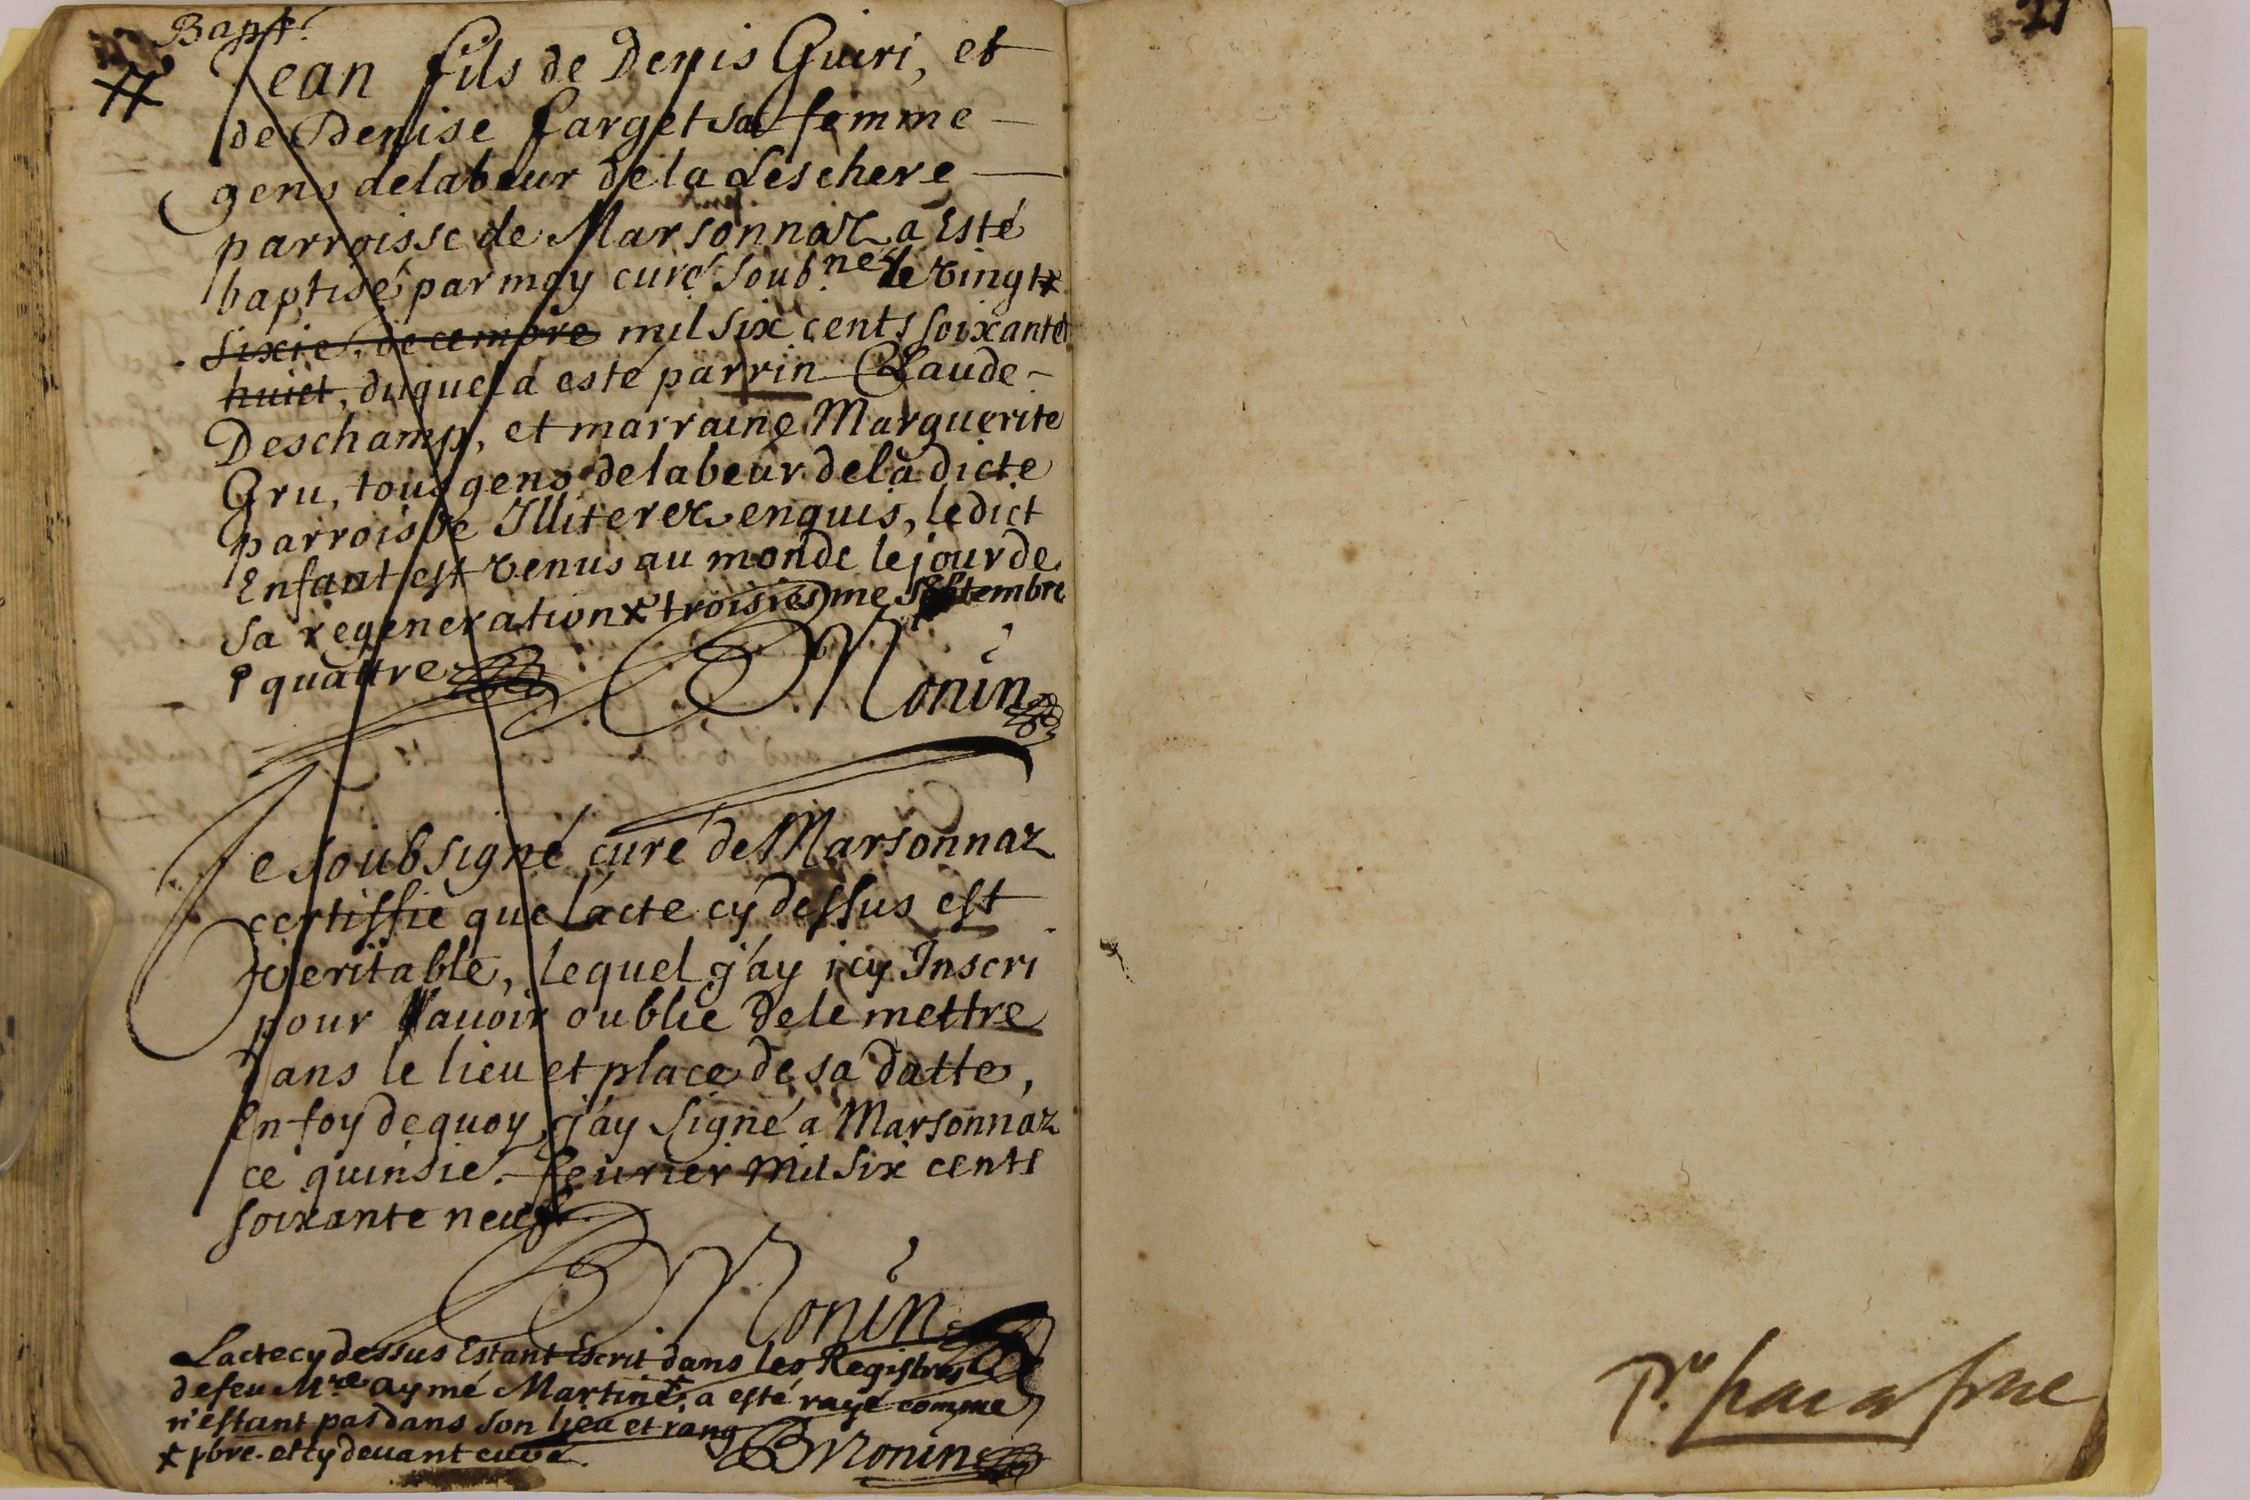 Bapt.
Jean fils de Denis Guiri, et
de Denise farget sa femme
gens de labeur de la Leschere
parroisse de Marsonnaz a Esté
baptisé par moy curé soub.né le vingt x
sixie. decembre mil six cents soixante
huict, duquel a esté parrin Claude
Deschamp, et marraine Marguerite
Gru, tous gens de labeur de la dicte
parroisse Illiterez enquis, le dict
Enfant est venus au monde le jour de
sa regeneration x troisiesme septembre
quattre
BMonin
Je soubsigné curé de Marsonnaz
certiffie que lacte cy dessus est
veritable, lequel j'ay icy Inscri
pour l'auoir oublie de le mettre
dans le lieu et place de sa datte,
En foy de quoy j'ay signé a Marsonnaz
ce quinsie. feurier mil six cents
soixante neuf
BMonin
Lacte cy dessus Estant Escrit dans les Registres
de feu Mre aymé Martine x, a esté rayé comme
n'estant pas dans son lieu et rang
x pbre. et cy deuant curé.
BMonin
21